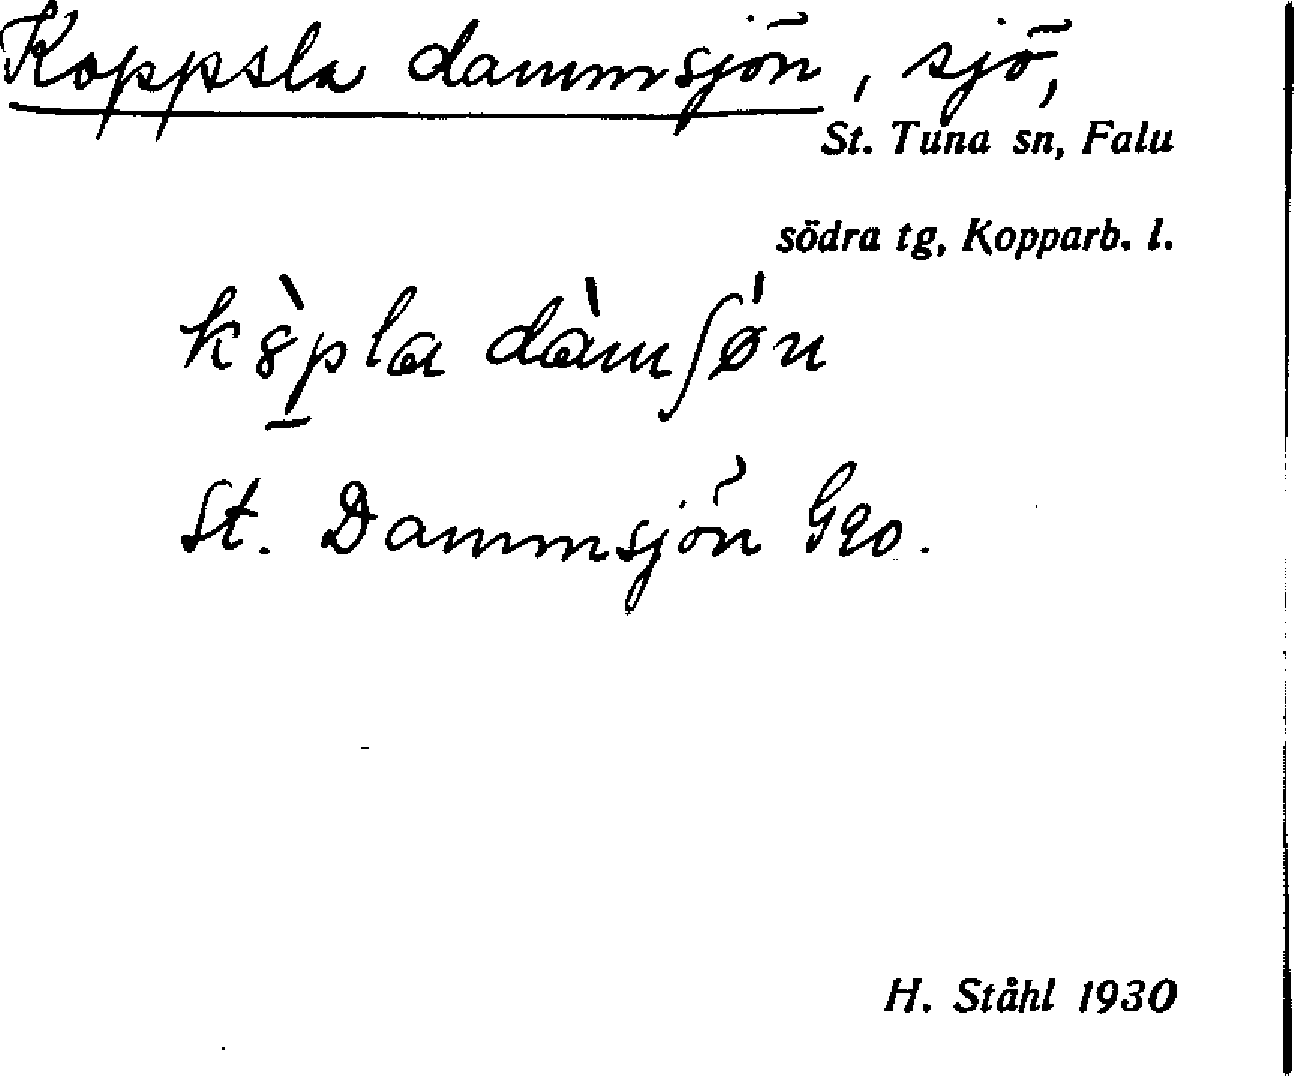 Koppsla dammsjön, sjö,
St. Tuna sn, Falu
södra tg, Kopparb. l.
k8̀p̲la dàmʃǿn
St. Dammsjön Geo.
H. Ståhl 1930